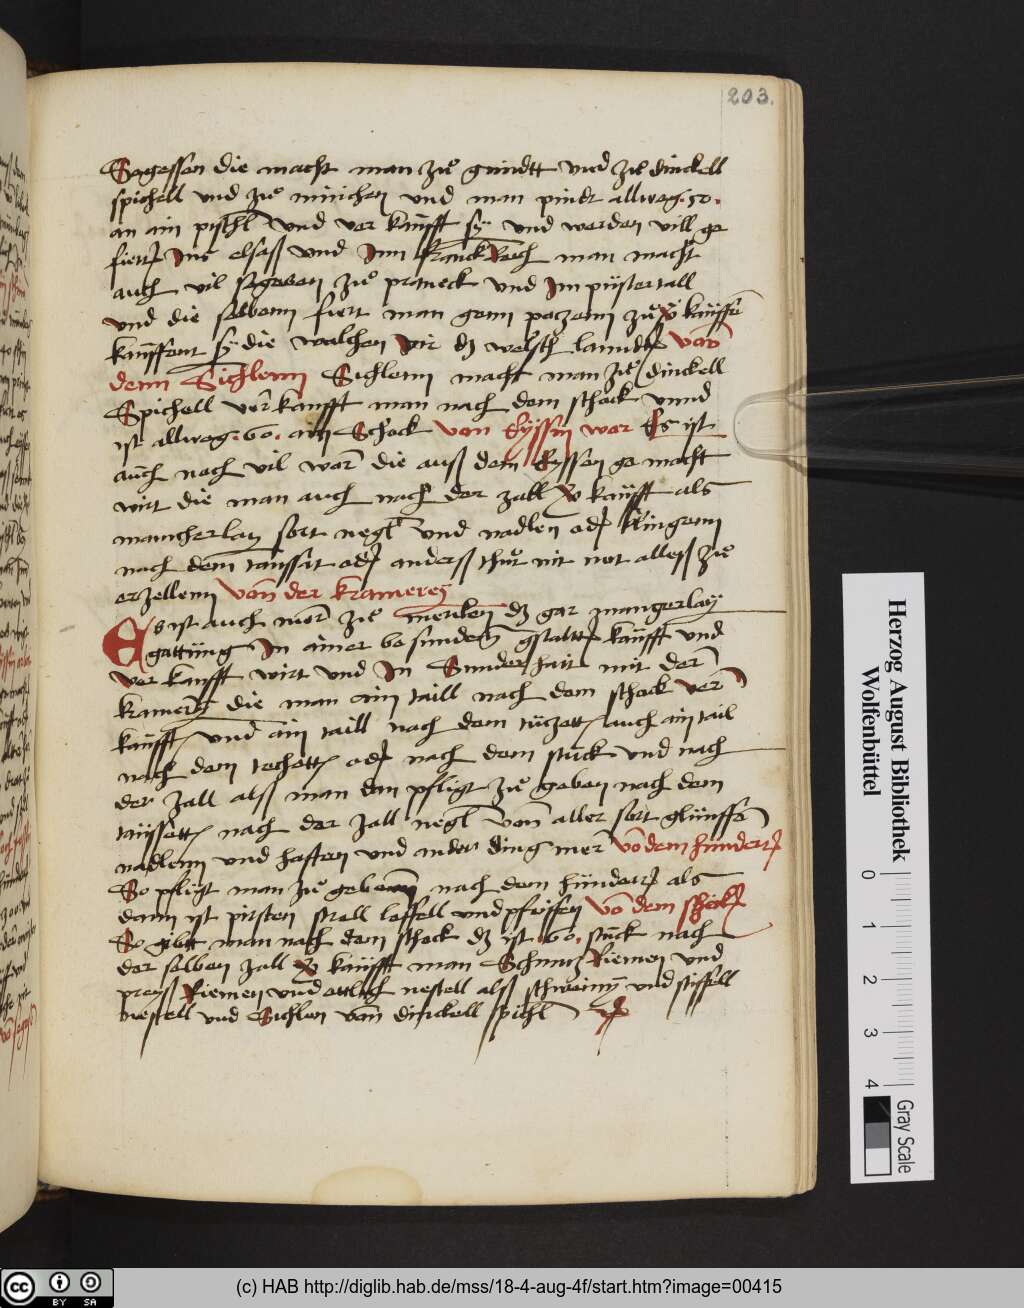 203.
Segessen die macht man zuͦ gmindtt vnd zuͦ dinckell
spichell vnd zuͦ minichen vnd man pindt allweg .50.
an ain pischl vnd ver kaufft sy vnd werden vill ge
fiertt Ins elsass vnd Inn franckReich man macht
auch vil segessen zuͦ prauneck vnd Im pustertall
vnd die selbenn fiert man genn poczenn zuͦ kauffen
kauffent sy die walchen vir dz welsch lanndt von
denn Sichlenn Sichlenn macht man zuͦ dinckell
Spichell verkaufft man nach dem schock vnnd
ist allweg .60. ain Schock von Eyssin war Es ist
auch noch vil war die auss dem Eyssen ge macht
wirt die man auch nach der zall kaufft als
mancherlay sort negl vnd nadlen od klingenn
nach dem taussat od anderss thut nit not alless zuͦ
erzellenn von der kramerey
Es ist auch mer zuͦ mercken dz gar mangerlay
gattung In ainer besundern gstaltt kaufft vnd
ver kaufft wirt vnd In Sunderhait mit der
kramerey die man ain taill nach dem schock ver
kaufft vnd ain taill nach dem tuczett auch ain tail
nach dem techett od nach dem stuck vnd nach
der zall alss man dan pfligt zuͦ geben nach dem
taussett nach der zall negl von aller sort gluffen
nadlenn vnd hafften vnd ander ding mer vo dem hundertt
So pfligt man zuͦ gebenn nach dem hundertt als
dann ist pirsten strell leffell vnd pfeiffen Vo dem schock
So gibtt man nach dem schock dz ist .60. stuck nach
der selben zall kaufft man Schmitz Riemen vnd
preyss Riemen vnd ettlich nestell alss schweiny vnd stiffell
nestell vnd Sichlen von dinckell spichl
Herzog August Bibliothek
Wolfenbüttel
0 1 2 3 4
Gray Scale
cc BY SA
(c) HAB http://diglib.hab.de/mss/18-4-aug-4f/start.htm?image=00415